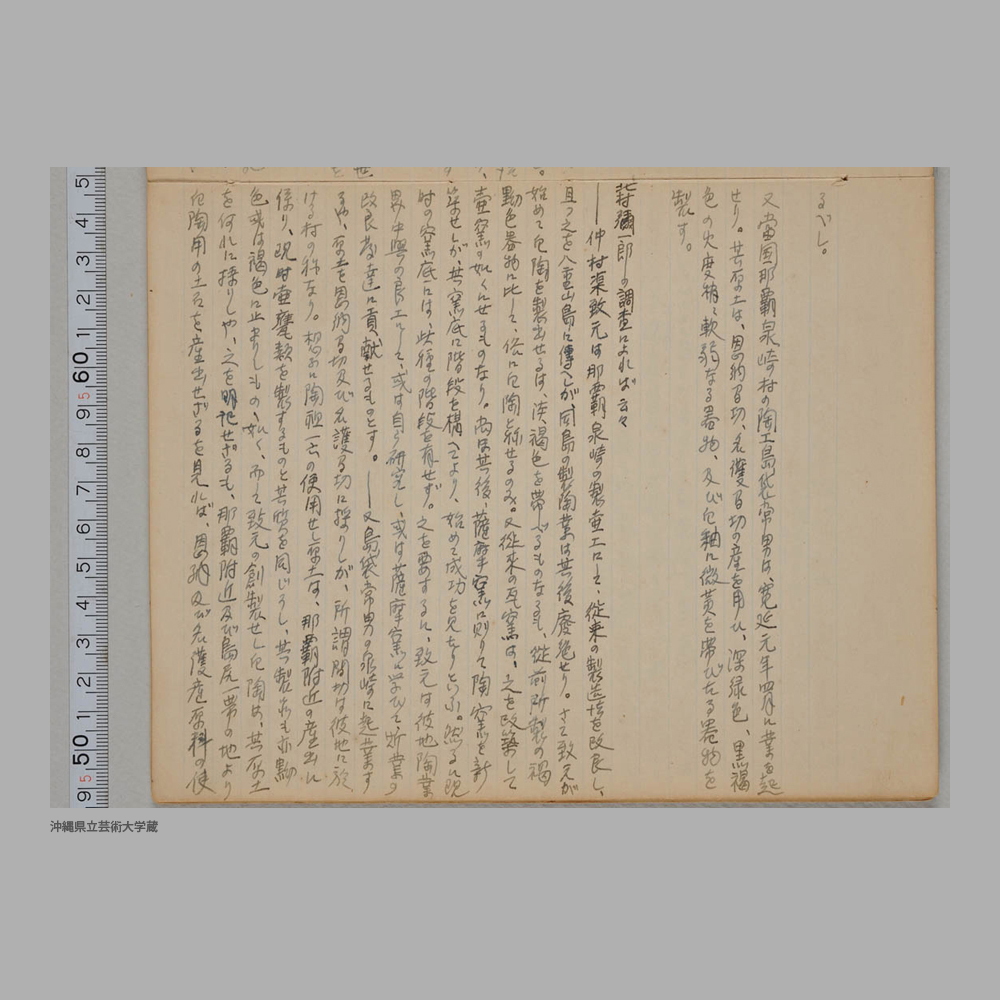 るべし。
又当国那覇泉崎村の陶工島袋常男は、寛延元年四月に業を起
せり。其原土は、恩納間切、名護間切の産を用ひ、深緑色、黒褐
色の火度稍々軟弱なる器物、及び白釉に微黄を帯びたる器物を
製す。
彌一郎の調査によれば云々
――仲村渠致元は那覇泉崎の製壷工にして、従来の製造法を改良し、
且つ之を八重山島に傳へしが、同島の製陶業は其後廃絶せり。さて致元が
始めて白陶を製出せるは、淡褐色を帯べるものなるも、従前所製の褐
黝色器物に比して、俗に白陶と称せるのみ。又従来の瓦窯は、之を改築して
壷窯の如くにせるものなり。尚は其後、薩摩窯に則りて陶窯を新
築せしが、其窯底に階段を構へてより、始めて成功を見たりといふ。然るに現
時の窯底には、此種の階段を有せず。之を要するに、致元は彼地陶業
界中興の良工にして、或は自ら研究し、或は薩摩窯に学びて、斯業の
改良発達に貢献せるものとす。――又島袋常男の泉崎に起業す
るや、原土を恩納間切及び名護間切に採りしが、所謂間切は彼地に於
ける村の称なり。想ふに陶祖一六の使用せし原土は、那覇附近の産出に
係り、現時壷甕類を製するものと其質を同じうし、其製品も亦黝
色或は褐色に止まりしものゝ如く、而して致元の創製せし白陶は、其原土
を何れに採りしや、之を明記せざるも、那覇附近及び島尻一帯の地より
白陶用の土石を産出せざるを見れば、恩納及び名護産原料の使
5
4
3
2
1
60
9
5
8
7
6
5
4
3
2
1
50
5
9
沖縄県立芸術大学蔵